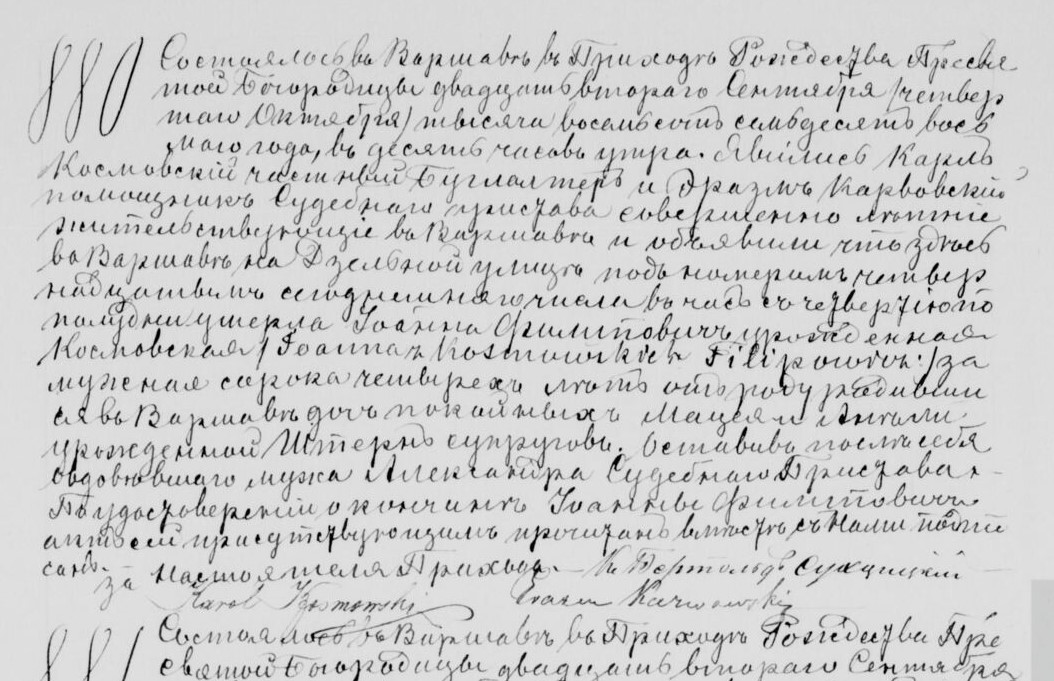 880 Состоялось въ Варшавѣ въ Приходѣ Рождества Пресвя
той Богородицы двадцать втораго Сентября /четвер
таго Октября/ тысяча восемьсотъ семьдесятъ вось
маго года, въ десять часовъ утра. Явились Карлъ
Космовскій частный Бухгалтеръ и Эразмъ Карвовскій
помощникъ Судебнаго пристава совершеннолѣтніе
жительствующіе въ Варшавѣ и объявили что здѣсь
въ Варшавѣ на Дзельной улицѣ подъ номеромъ четыр
надцатымъ сегоднешняго числа въ часъ съ четвертью по
полудни умерла Іоанна Филиповичъ урожденная
Космовская /Joanna z Kosmowskich Filipowicz:/ за
мужная сорока четырехъ лѣтъ отъ роду родивша
яся въ Варшавѣ дочь покойныхъ Мацея и Анели
урожденной Штернъ супруговъ. Оставивъ послѣ себя
овдовѣвшаго мужа Александра Судебнаго Пристава
По удостовереніи о кончинѣ Іоанны Филиповичъ
актъ сей присутствующимъ прочитанъ вмѣстѣ съ нами подпи
санъ.
за Настоятеля Прихода Кс Бертольдъ
Karol Kosmowski Erazm Karwowski
881 Состоялось въ Варшавѣ въ Приходѣ Рождества Пре
святой Богородицы двадцать втораго Сентября